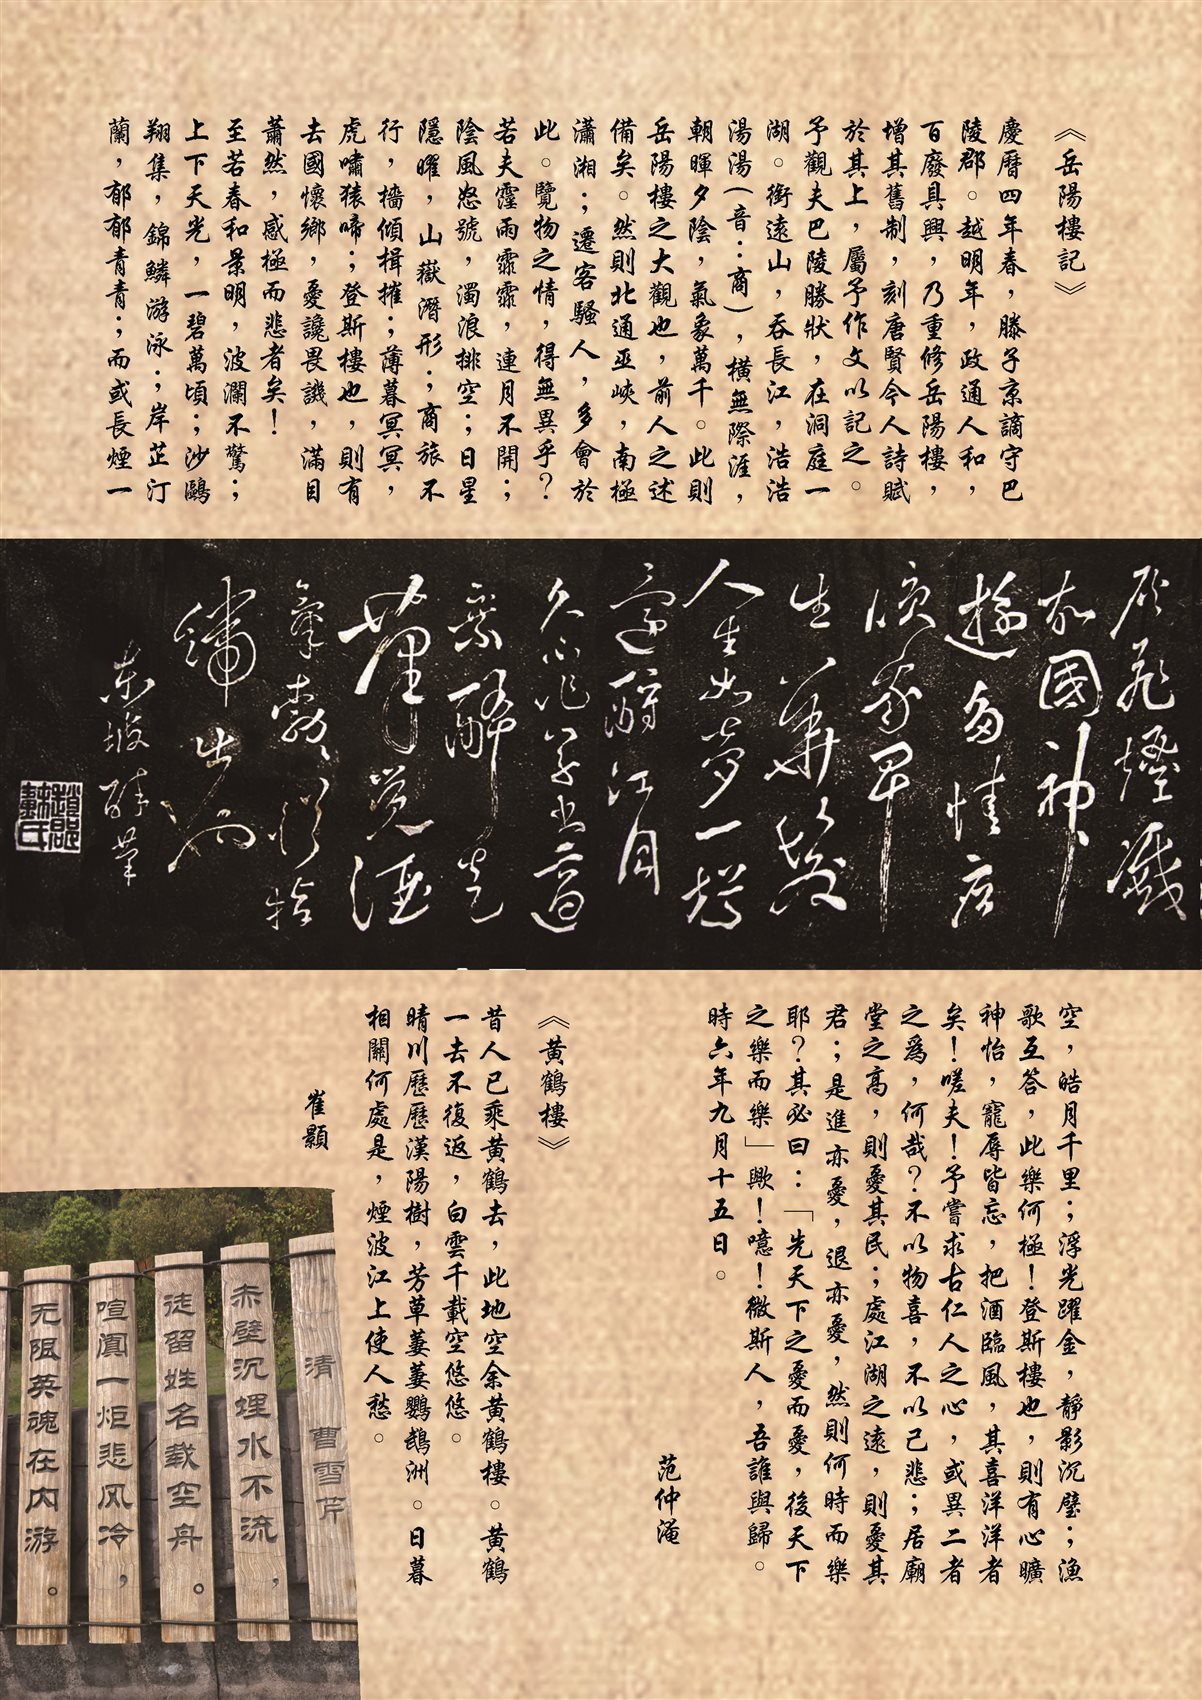 《岳陽樓記》
慶曆四年春，滕子京謫守巴
陵郡。越明年，政通人和，
百廢具興，乃重修岳陽樓，
增其舊制，刻唐賢今人詩賦
於其上，屬予作文以記之。
予觀夫巴陵勝狀，在洞庭一
湖。銜遠山，吞長江，浩浩
湯湯（音：商），橫無際涯，
朝暉夕陰，氣象萬千。此則
岳陽樓之大觀也，前人之述
備矣。然則北通巫峽，南極
瀟湘；遷客騷人，多會於
此。覽物之情，得無異乎？
若夫霪雨霏霏，連月不開；
陰風怒號，濁浪排空；日星
隱曜，山嶽潛形；商旅不
行，檣傾楫摧；薄暮冥冥，
虎嘯猿啼；登斯樓也，則有
去國懷鄉，憂讒畏譏，滿目
蕭然，感極而悲者矣！
至若春和景明，波瀾不驚；
上下天光，一碧萬頃；沙鷗
翔集，錦鱗游泳；岸芷汀
蘭，郁郁青青；而或長煙一
灰飛煙滅
故國神
遊多情應
笑我早
生華髮
人生如夢一尊
還酹江月
久不作草書適
乘醉走
筆覺酒
氣勃勃從指
端出也
東坡醉筆
空，皓月千里；浮光躍金，靜影沉璧；漁
歌互答，此樂何極！登斯樓也，則有心曠
神怡，寵辱皆忘，把酒臨風，其喜洋洋者
矣！嗟夫！予嘗求古仁人之心，或異二者
之爲，何哉？不以物喜，不以己悲；居廟
堂之高，則憂其民；處江湖之遠，則憂其
君；是進亦憂，退亦憂，然則何時而樂
耶？其必曰：「先天下之憂而憂，後天下
之樂而樂」歟！噫！微斯人，吾誰與歸。
時六年九月十五日。
范仲淹
《黃鶴樓》
昔人已乘黃鶴去，此地空余黃鶴樓。黃鶴
一去不復返，白雲千載空悠悠。
晴川歷歷漢陽樹，芳草萋萋鸚鵡洲。日暮
鄉關何處是，煙波江上使人愁。
崔顥
清　曹雪芹
赤壁沉埋水不流，
徒留姓名载空舟。
喧阗一炬悲风冷，
无限英魂在内游。